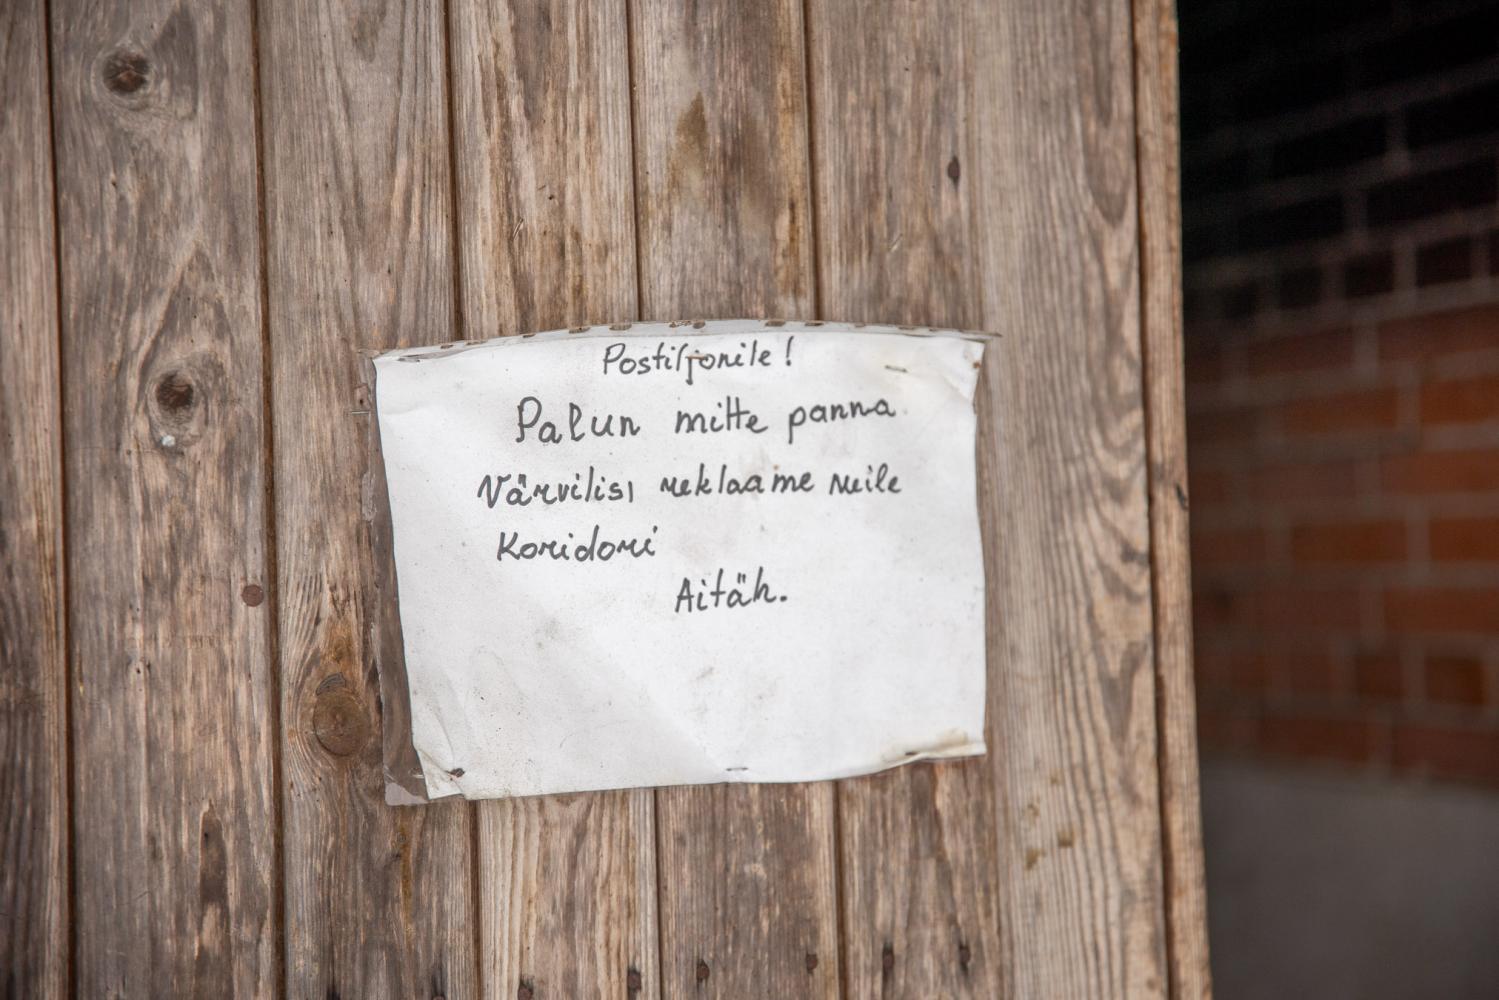 Postiljonile!
Palun mitte panna
Värvilisi reklaame meile
Koridori
Aitäh.